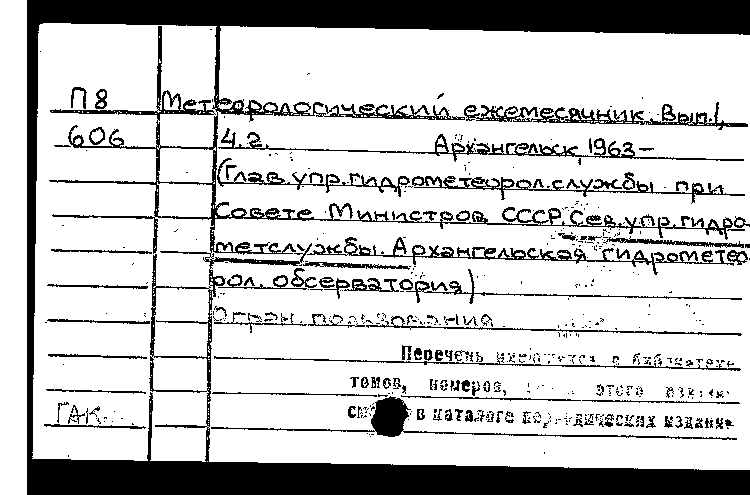 П8 Метеорологический ежемесячник. Вып.1,
606 4.2. Архангельск, 1963—
(Глав.упр.гидрометеорол.службы при
Совете Министров СССР. Сев.упр.гидро-
метслужбы. Архангельская гидрометео-
рол. обсерватория)
Огран. пользования
Перечень имеющихся в библиотеке
томов, номеров, этого издания
ГАК в каталоге периодических издани